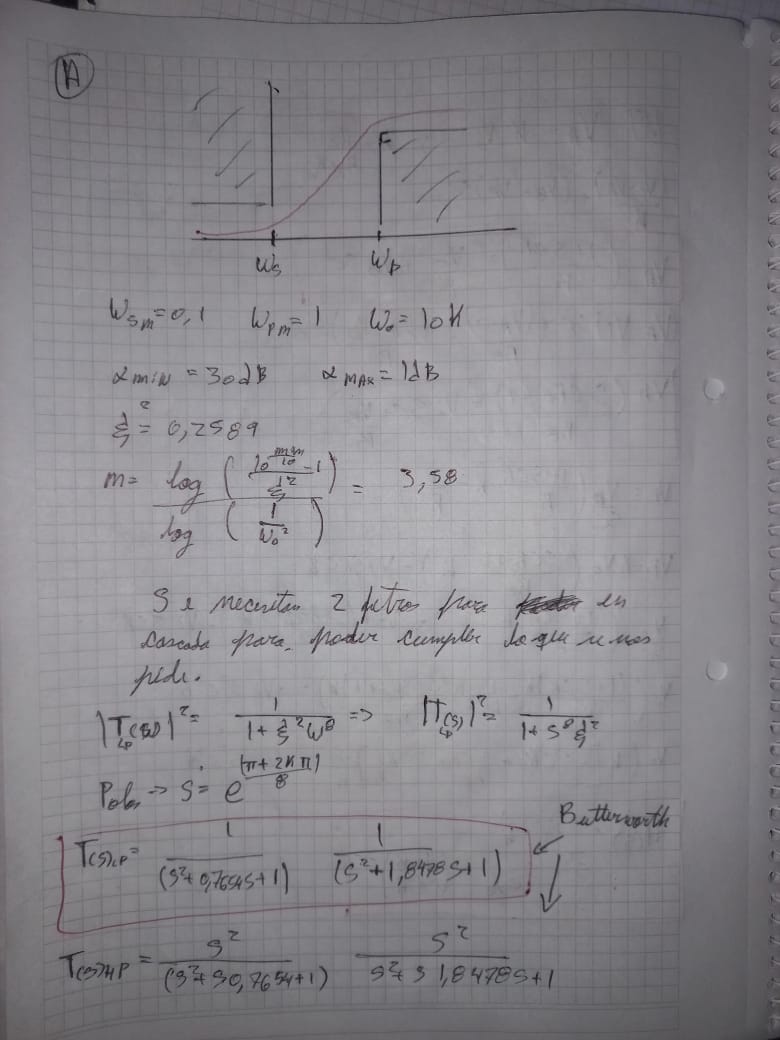 A
F
Ws Wp
Wsm=0,1 Wpm=1 Wo=10K
αmin = 30dB αMAX=1dB
ξ²= 0,2589
m= log (10^(min/10) -1 / ξ²) / log (1/Wo²) = 3,58
Se necesitan 2 filtros para en
cascada para poder cumplir lo que se nos
pide.
|T(s)LP|²= 1/(1+ξ²W⁸) => |T(s)LP|²= 1/(1+S⁸ξ²)
Polos → S= e^((π+2Kπ)/8)
Butterworth
T(s)LP= 1/(S²+0,7654S+1) 1/(S²+1,8478S+1)
T(s)HP= S²/(S²+S0,7654+1) S²/(S²+S1,8478S+1)